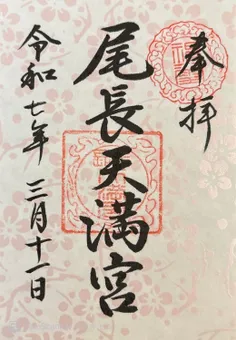 奉拝
尾長天満宮
令和七年 三月十一日